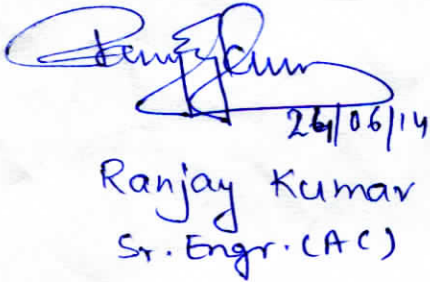 26/06/14
Ranjay Kumar
Sr. Engr. (AC)